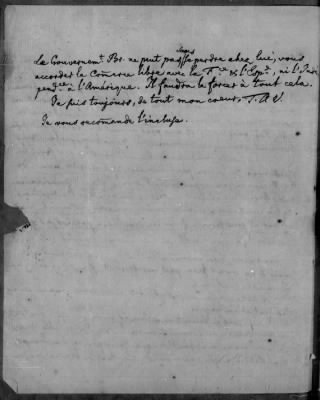 Le Gouvernemt. Br. ne peut pas sans se perdre chez lui, vous
accorder le Comerce libre avec la Fce. & l'Espe., ni l'Inde
pendce. à l'Amérique. Il faudra le forcer à tout cela.
Je suis toujours, de tout mon coeur, T. à V.
Je vous recomande l'incluse.